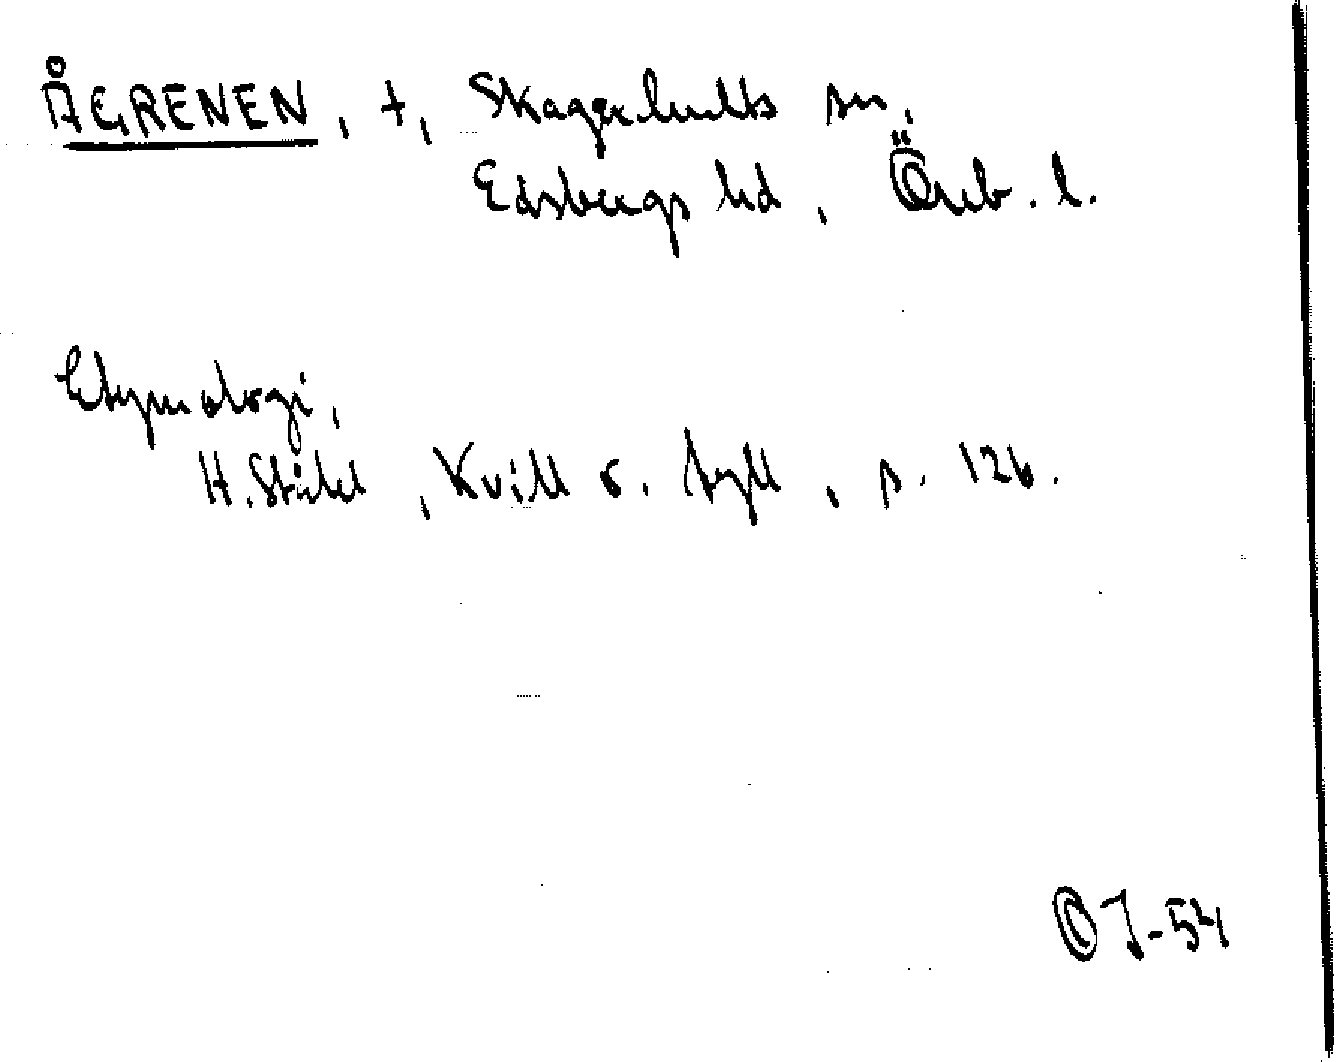 ÅGRENEN, t, Skagerhults sn,
Edsbergs hd, Öreb. l.
Etymologi,
H. Ståhl, Kvill o. tyll, s. 126.
ÖJ-54